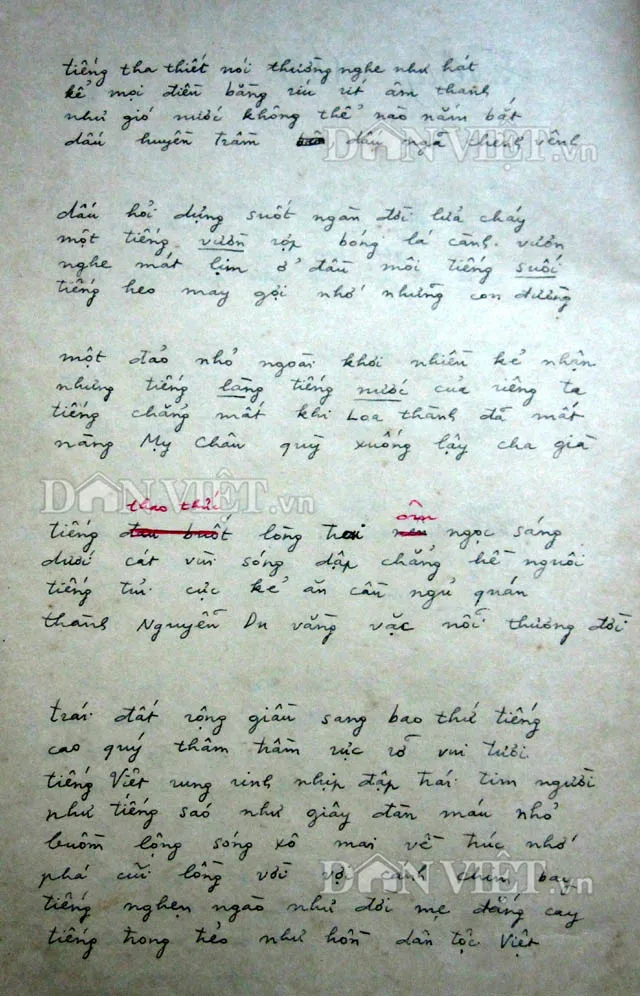 tiếng tha thiết nói thường nghe như hát
kể mọi điều bằng ríu rít âm thanh
như gió nước không thể nào nắm bắt
dấu huyền trầm dấu ngã chênh vênh
DÂN VIỆT.vn
dấu hỏi dựng suốt ngàn đời lửa cháy
một tiếng vườn rợp bóng lá cành vươn
nghe mát lịm ở đầu môi tiếng suối
tiếng heo may gợi nhớ những con đường
một đảo nhỏ ngoài khơi nhiều kẻ nhận
nhưng tiếng làng tiếng nước của riêng ta
tiếng chẳng mất khi Loa thành đã mất
nàng Mỵ Châu quỳ xuống lạy cha già
DÂN VIỆT.vn
thao thức ôm
tiếng đau buốt lòng trai nên ngọc sáng
dưới cát vùi sóng dập chẳng hề nguôi
tiếng tủi cực kẻ ăn cầu ngủ quán
thành Nguyễn Du vằng vặc nỗi thương đời
trái đất rộng giầu sang bao thứ tiếng
cao quý thâm trầm rực rỡ vui tươi
tiếng Việt rung rinh nhịp đập trái tim người
như tiếng sáo như giây đàn máu nhỏ
buồm lộng sóng xô mai về trúc nhớ
phá cũi lồng vời vợi cánh chim bay
DÂN VIỆT.vn
tiếng nghẹn ngào như đời mẹ đắng cay
tiếng trong trẻo như hồn dân tộc Việt